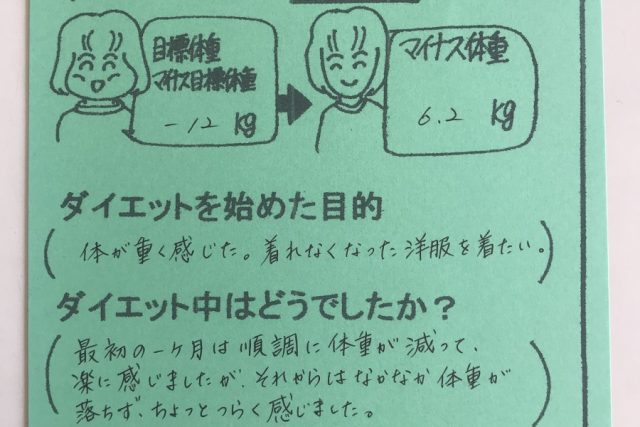 目標体重
マイナス目標体重
-12 Kg
マイナス体重
6.2 Kg
ダイエットを始めた目的
体が重く感じた。着れなくなった洋服を着たい。
ダイエット中はどうでしたか？
最初の一ヶ月は順調に体重が減って、
楽に感じましたが、それからはなかなか体重が
落ちず、ちょっとつらく感じました。